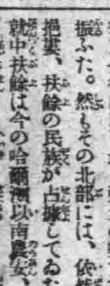 振ふた。然もその北部には、依然
挹婁、扶餘の民族が占據してゐた
就中扶餘は今の哈爾濱以南農安、